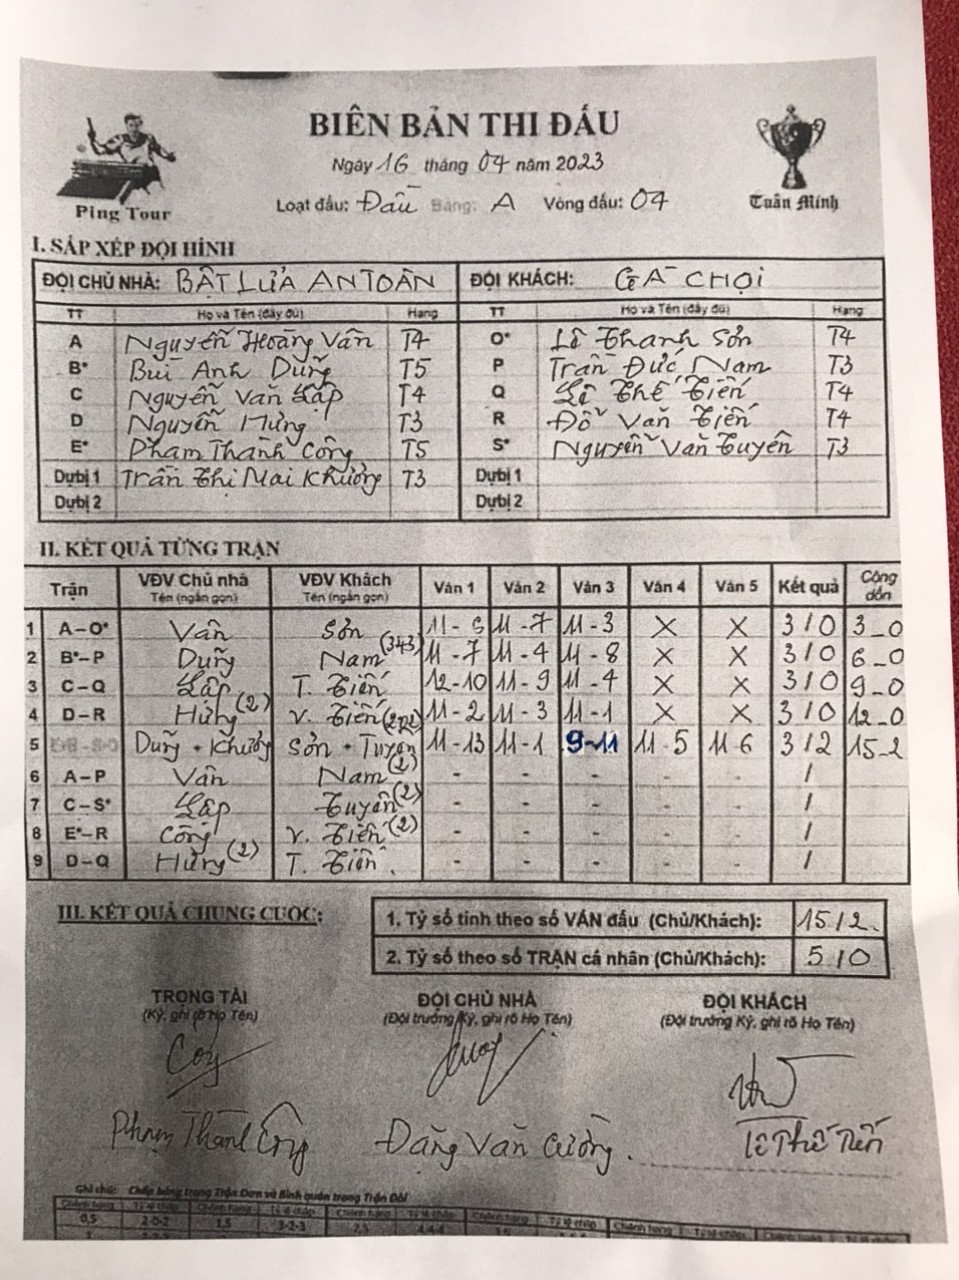 BIÊN BẢN THI ĐẤU
Ngày 16 tháng 04 năm 2023
Ping Tour
Loạt đấu: Đấu Bảng: A Vòng đấu: 04
Tuấn Minh
I. SẮP XẾP ĐỘI HÌNH
ĐỘI CHỦ NHÀ: BẬT LỬA AN TOÀN ĐỘI KHÁCH: GÀ CHỌI
TT Họ và Tên (đầy đủ) Hạng TT Họ và Tên (đầy đủ) Hạng
A Nguyễn Hoàng Vân T4 O* Lê Thanh Sơn T4
B* Bùi Anh Dũng T5 P Trần Đức Nam T3
C Nguyễn Văn Lập T4 Q Lê Thế Tiến T4
D Nguyễn Hưng T3 R Đỗ Văn Tiến T4
E* Phạm Thành Công T5 S* Nguyễn Văn Tuyên T3
Dự bị 1 Trần Thị Mai Khương T3 Dự bị 1
Dự bị 2 Dự bị 2
II. KẾT QUẢ TỪNG TRẬN
Trận VĐV Chủ nhà Tên (ngắn gọn) VĐV Khách Tên (ngắn gọn) Ván 1 Ván 2 Ván 3 Ván 4 Ván 5 Kết quả Cộng dồn
1 A-O* Vân Sơn 11-6 11-7 11-3 X X 3/0 3-0
2 B*-P Dũng Nam (343) 11-7 11-4 11-8 X X 3/0 6-0
3 C-Q Lập T. Tiến 12-10 11-9 11-4 X X 3/0 9-0
4 D-R Hưng (2) V. Tiến 11-2 11-3 11-1 X X 3/0 12-0
5 Dũng + Khương Sơn + Tuyên 11-13 11-1 9-11 11-5 11-6 3/2 15-2
6 A-P Vân Nam (2) - - - - - /
7 C-S* Lập Tuyên (2) - - - - - /
8 E*-R Công V. Tiến (2) - - - - - /
9 D-Q Hưng (2) T. Tiến - - - - - /
III. KẾT QUẢ CHUNG CUỘC:
1. Tỷ số tính theo số VÁN đấu (Chủ/Khách): 15/2
2. Tỷ số theo số TRẬN cá nhân (Chủ/Khách): 5/0
TRỌNG TÀI ĐỘI CHỦ NHÀ ĐỘI KHÁCH
(Ký, ghi rõ Họ Tên) (Đội trưởng Ký, ghi rõ Họ Tên) (Đội trưởng Ký, ghi rõ Họ Tên)
Phạm Thành Công Đặng Văn Cường. Lê Thế Tiến
Ghi chú: Chấp bóng trong Trận Đơn và Bình quân trong Trận Đôi
Chênh hạng Tỷ lệ chấp Chênh hạng Tỷ lệ chấp Chênh hạng Tỷ lệ chấp Chênh hạng Tỷ lệ chấp
0,5 2-0-2 1,5 3-2-3 2,5 4-4-4